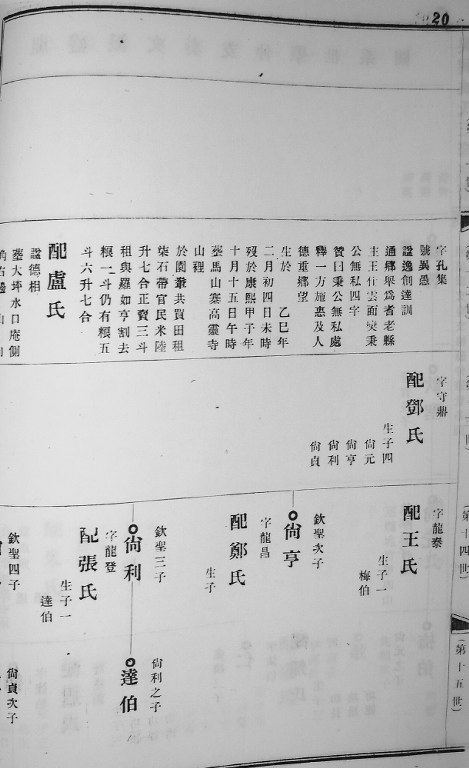 20
字孔集
號異愚
諡逸創達訓
通鄉舉爲者老縣
主王仕雲面奬秉
公無私四字
贊曰秉公無私處
釋一方施惠及人
德重鄉望
生於 乙巳年
二月初四日未時
歿於康熙甲子年
十月十五日午時
塟馬山寨高靈寺
山裡
於園叢共買田租
柴石帶官民米陸
升七合正賣三斗
租與羅如亨割去
粮一斗仍有粮五
斗六升七合
配盧氏
諡德相
塟大坪水口庵側
字守鼎
配鄧氏
生子四
尙元
尙亨
尙利
尙貞
第十四世
字龍泰
配王氏
生子一
梅伯
欽聖次子
尙亨
字龍昌
配鄭氏
生子
欽聖三子
尙利
字龍登
配張氏
生子一
達伯
欽聖四子
(第十五世)
尙利之子
達伯
尙貞次子